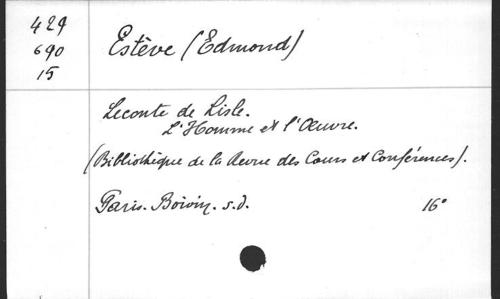 429
690
15
Estève (Edmond)
Leconte de Lisle.
L'Homme et l'Œuvre.
(Bibliothèque de la Revue des Cours et Conférences).
Paris. Boivin. s.d. 16°